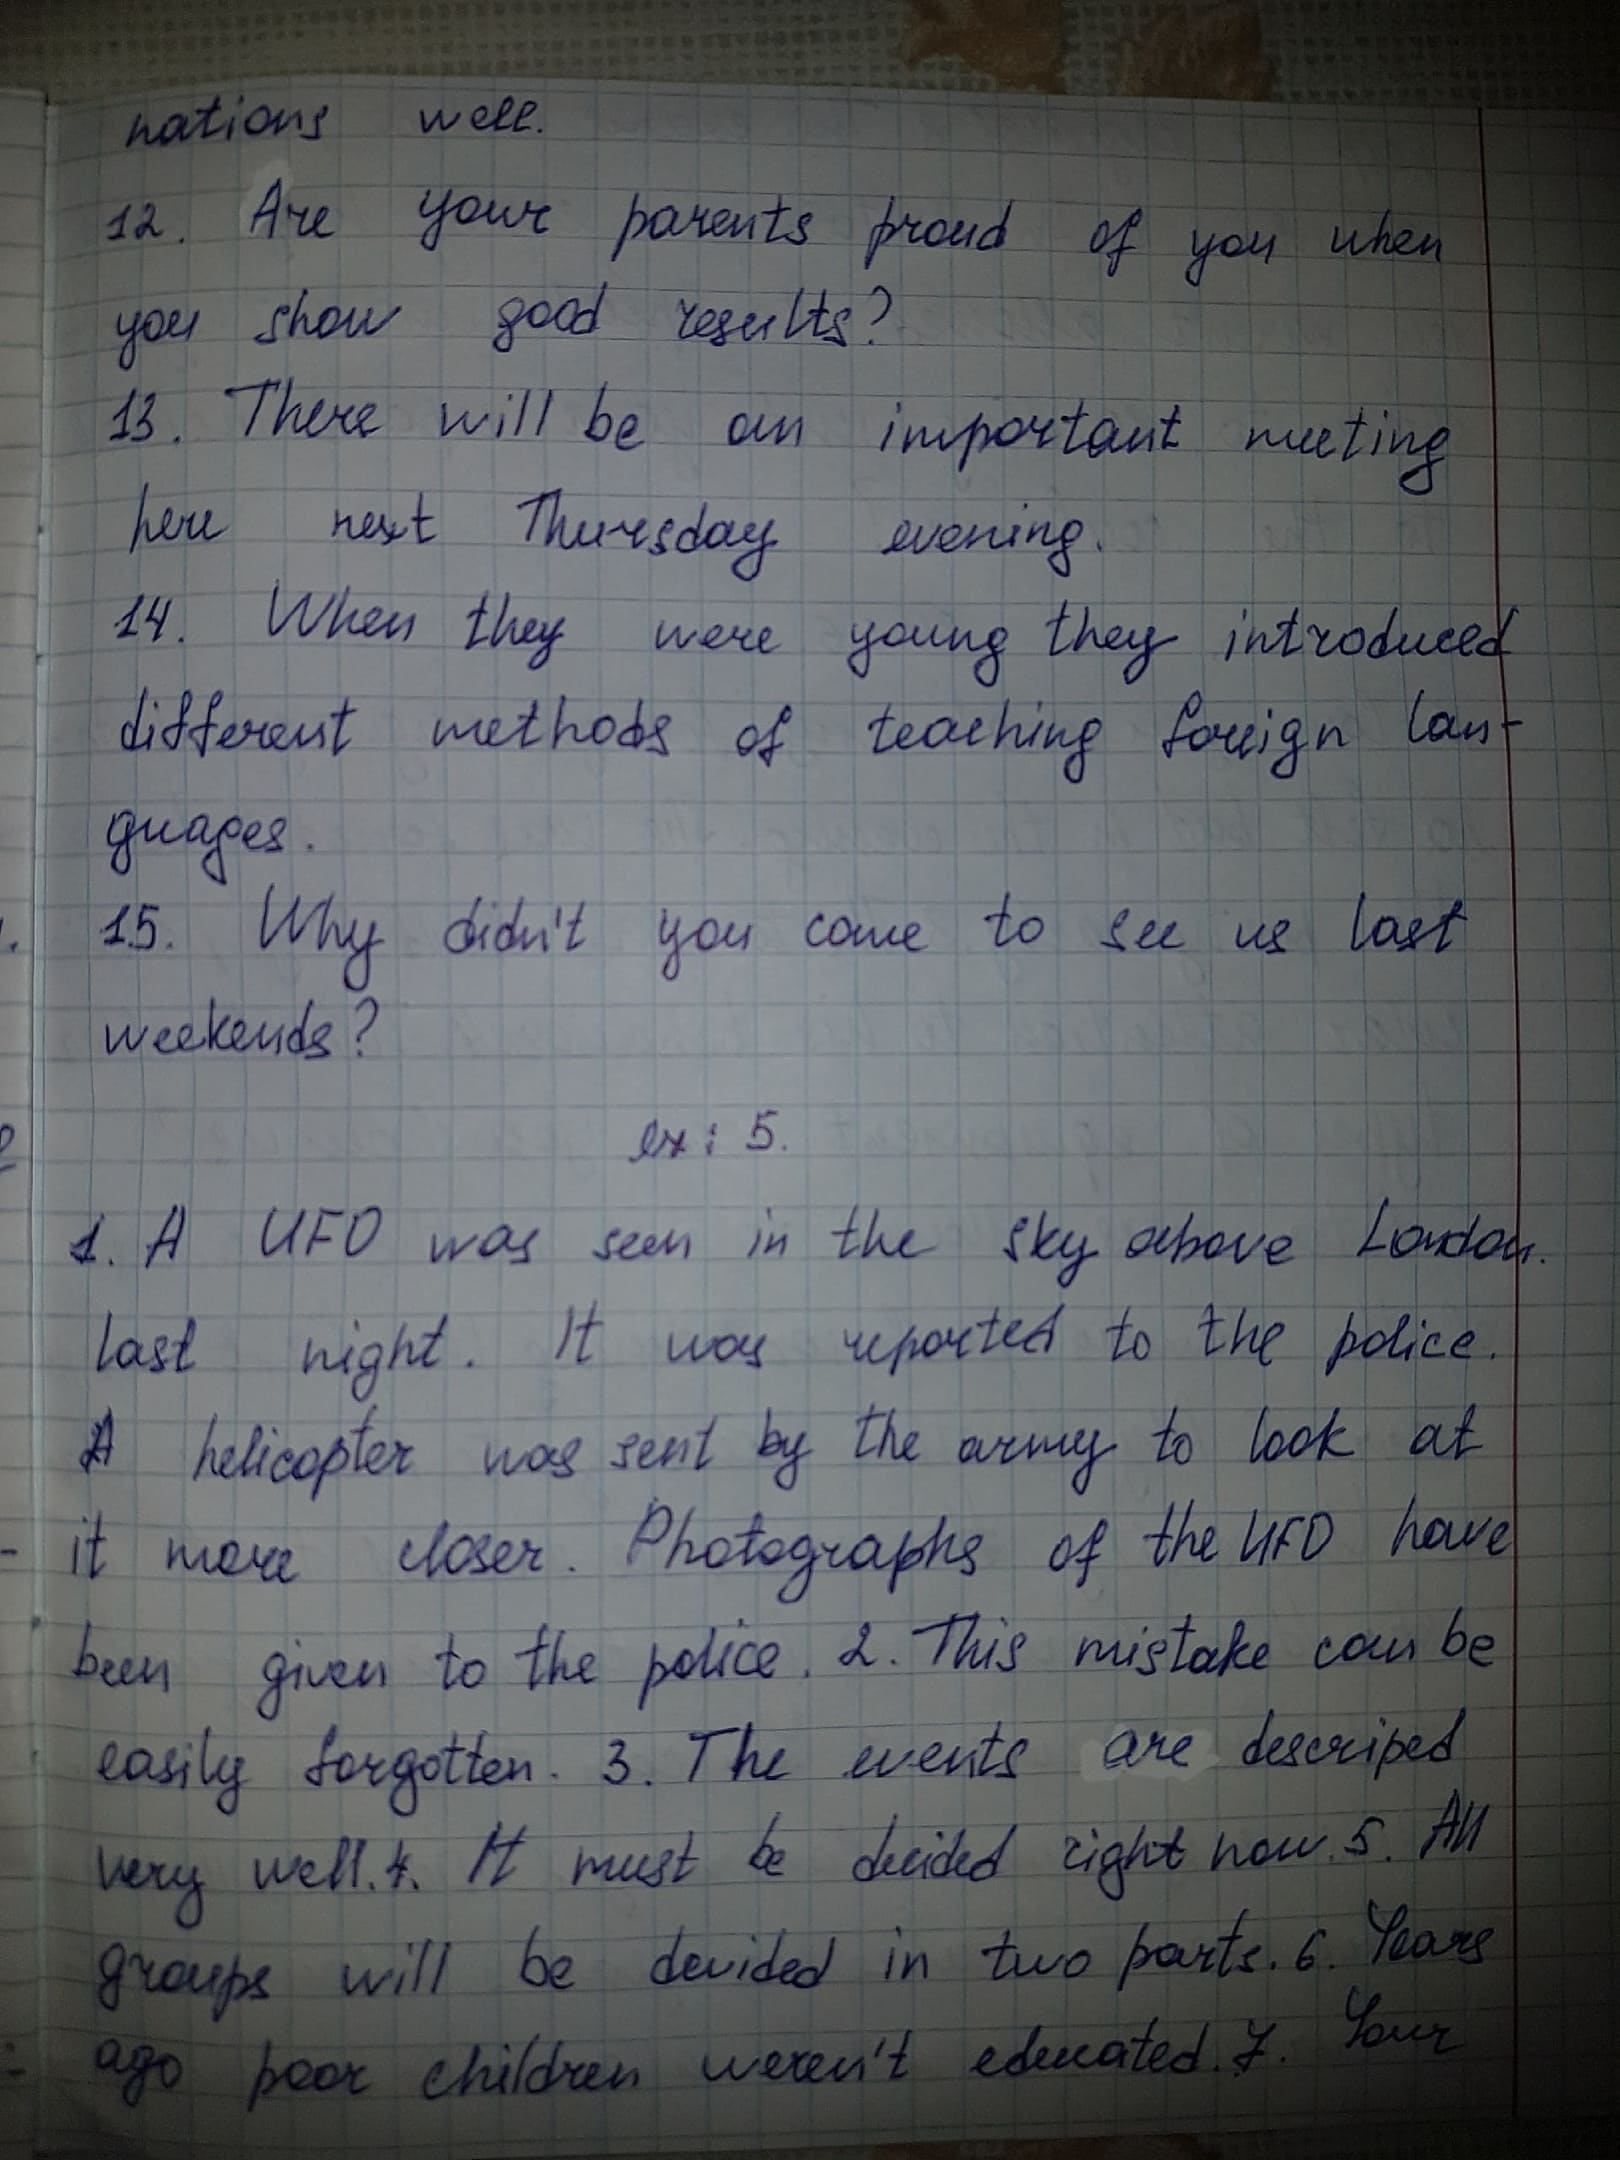 nations well.
12. Are your parents proud of you when
you show good results?
13. There will be an important meeting
here next Thursday evening.
14. When they were young they introduced
different methods of teaching foreign lan-
guages.
15. Why didn't you come to see us last
weekends?
ex: 5.
1. A UFO was seen in the sky above London.
last night. It was reported to the police.
A helicopter was sent by the army to look at
it more closer. Photographs of the UFO have
been given to the police. 2. This mistake can be
easily forgotten. 3. The events are descriped
very well. 4. It must be decided right now. 5. All
groups will be devided in two parts. 6. Years
ago poor children weren't educated. 7. Your